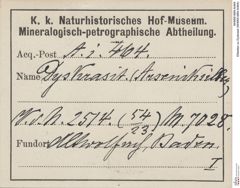 K. k. Naturhistorisches Hof-Museum.
Mineralogisch-petrographische Abtheilung.
Acq.-Post A. i. 464.
Name Dyskrasit (Arsenhältig)
V. d. N. 2514. (54/23) M. 7028.
Fundort Wolfach, Baden
I